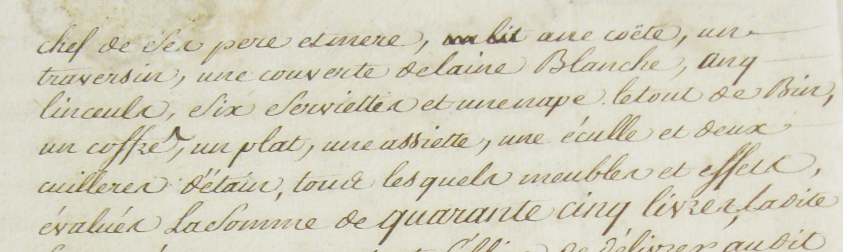 chef de ses pere et mere, un lit une coëte, un
traversin, une couverte de laine Blanche, cinq
linceuls, six serviettes et une nape le tout de Brin,
un coffre, un plat, une assiette, une éculle et deux
cuilleres d'étain, tous lesquels meubles et effets,
évalués La somme de quarante cinq livres, Ladite
de délivrer audit